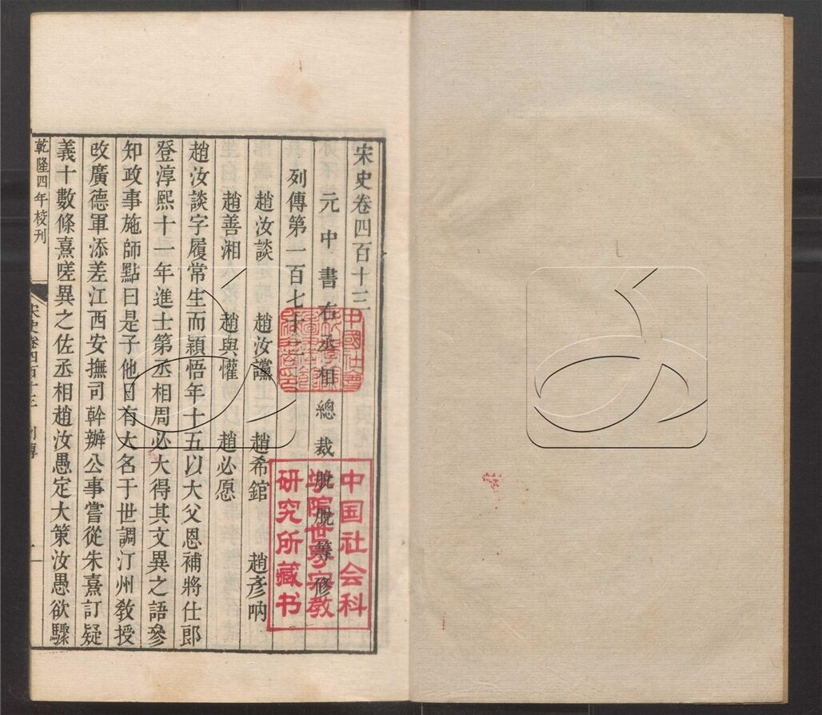 宋史卷四百十三
元中書右丞相總裁脫脫等修
列傳第一百七十二
趙汝談 趙汝讜 趙希錧 趙彥吶
趙善湘 趙與懽 趙必愿
趙汝談字履常生而穎悟年十五以大父恩補將仕郎
登淳熙十一年進士第丞相周必大得其文異之語參
知政事施師點曰是子他日有大名于世調汀州敎授
改廣德軍添差江西安撫司幹辦公事嘗從朱熹訂疑
義十數條熹嗟異之佐丞相趙汝愚定大策汝愚欲驟
乾隆四年校刊
宋史卷四百十三 列傳 一
中国社会科
学院世界宗教
研究所藏书
中國社會